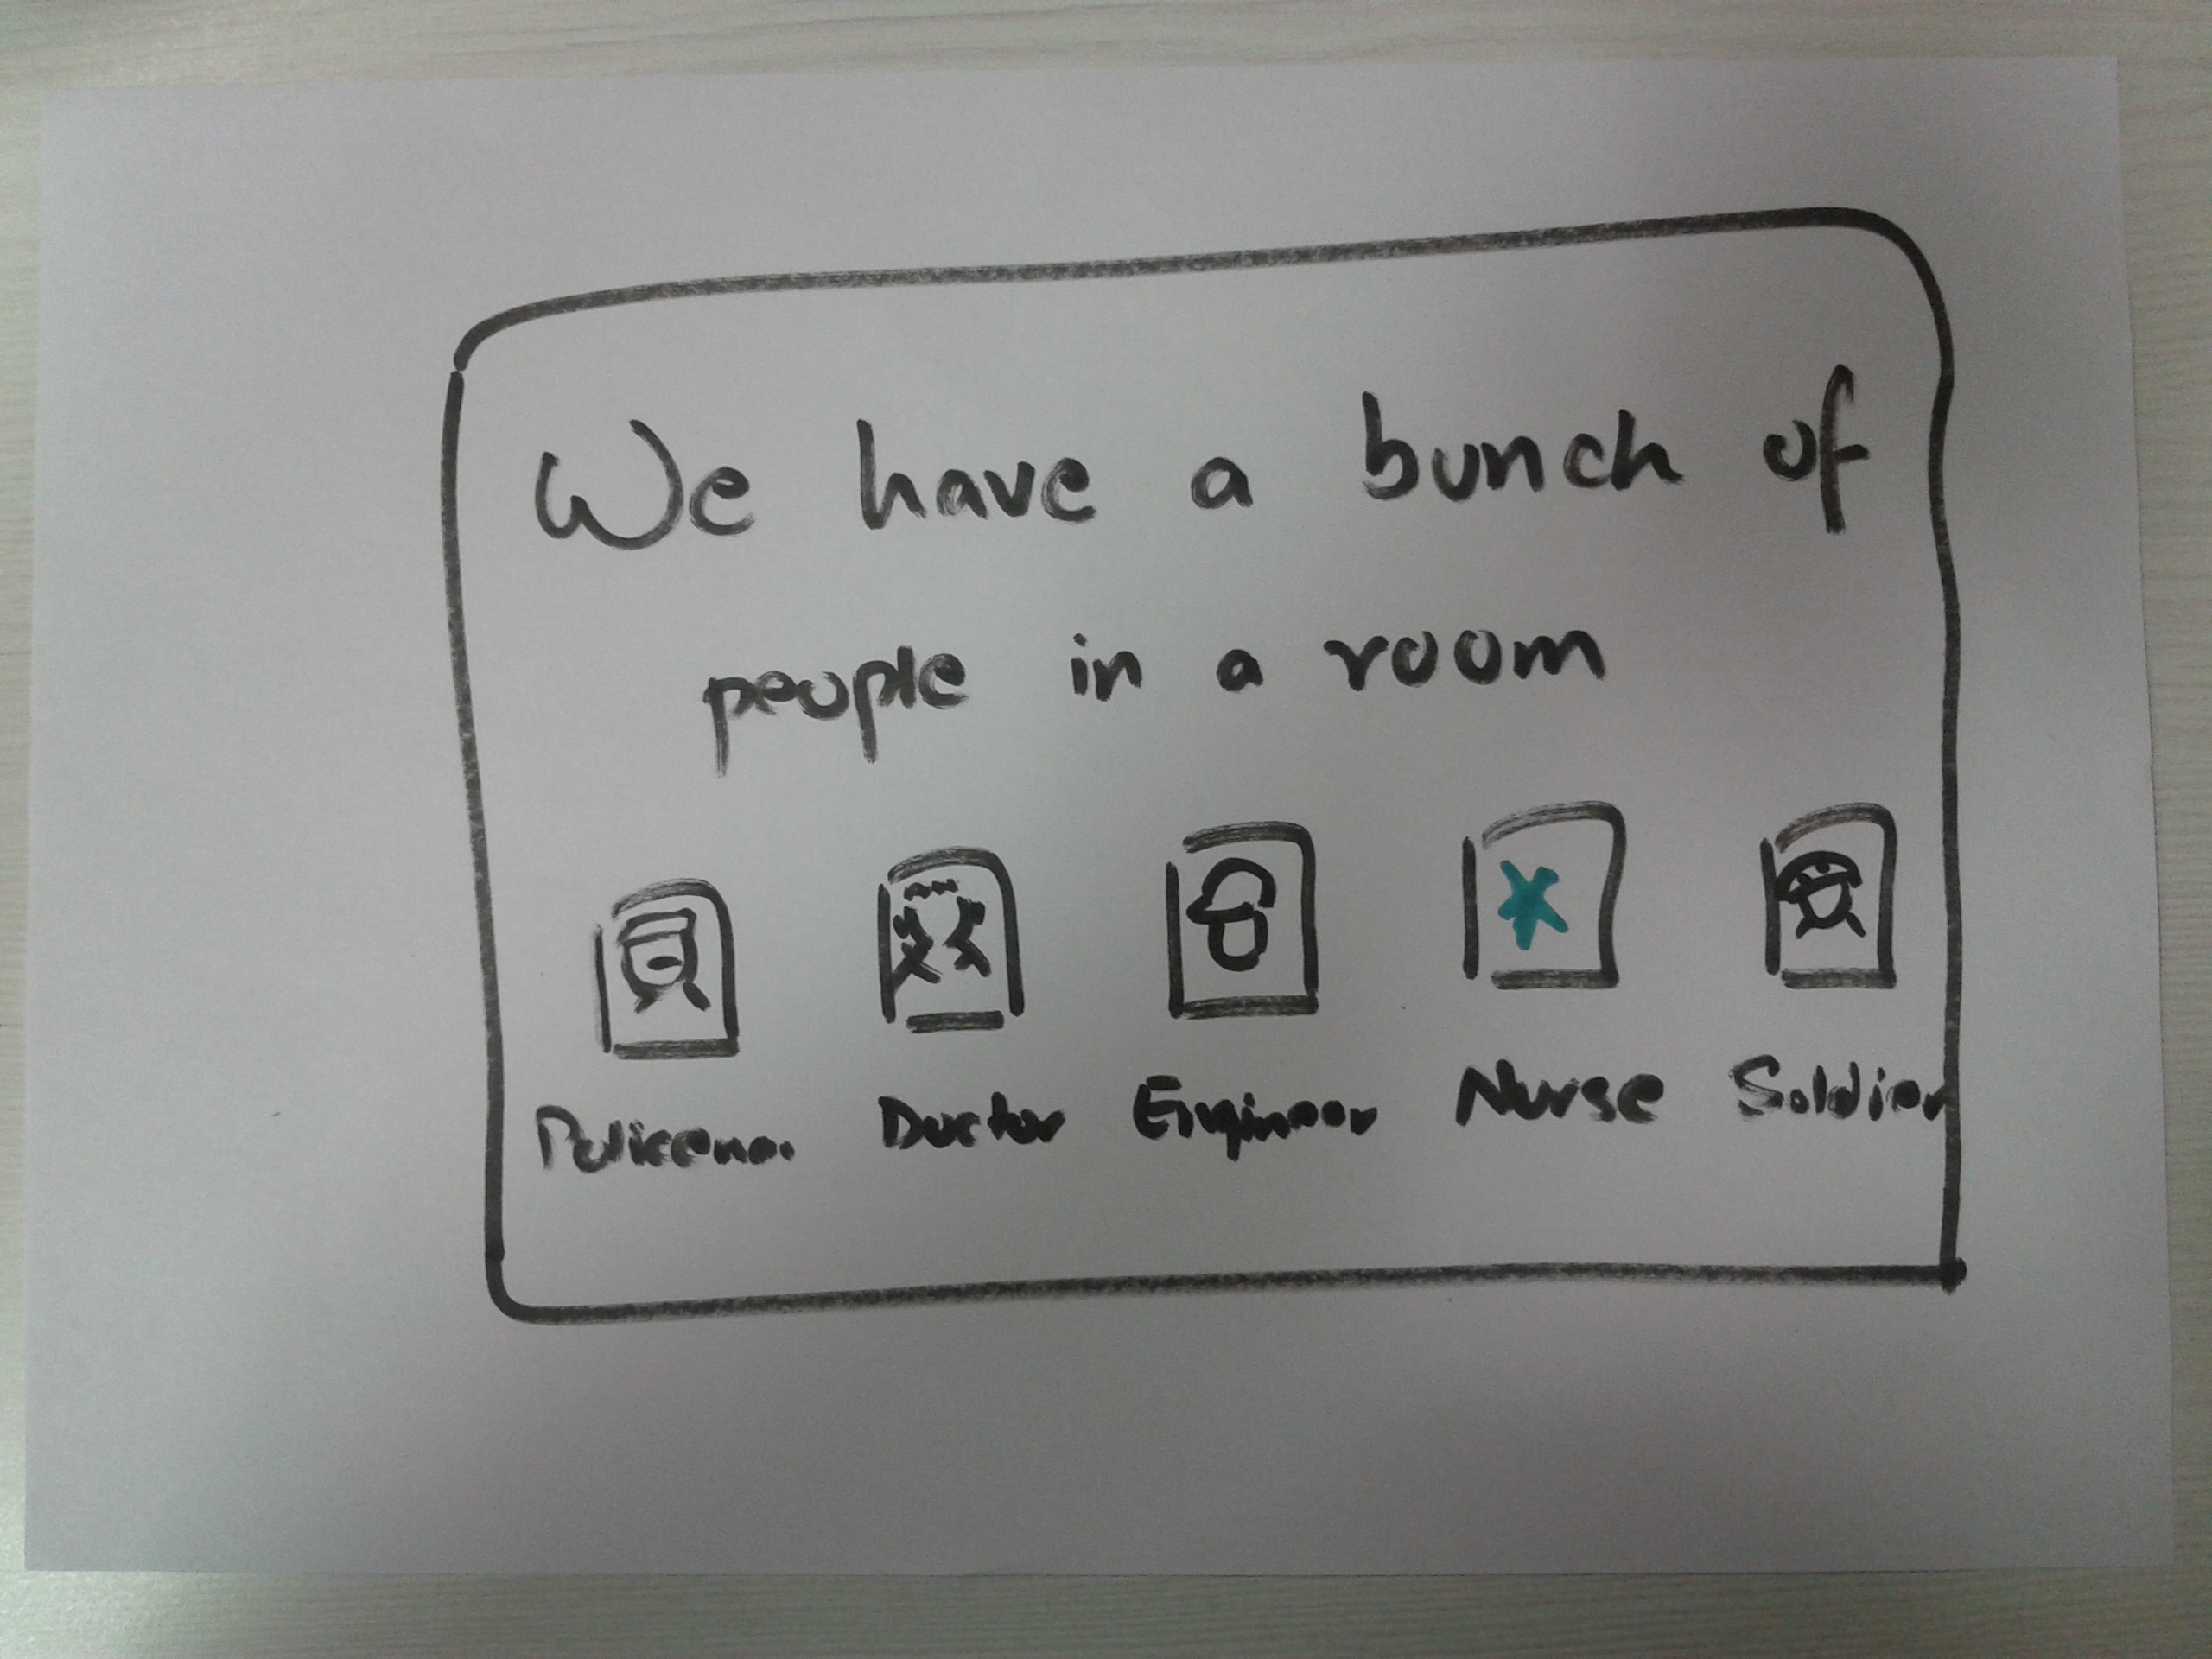 We have a bunch of
people in a room
Doctor Engineer Nurse Soldier